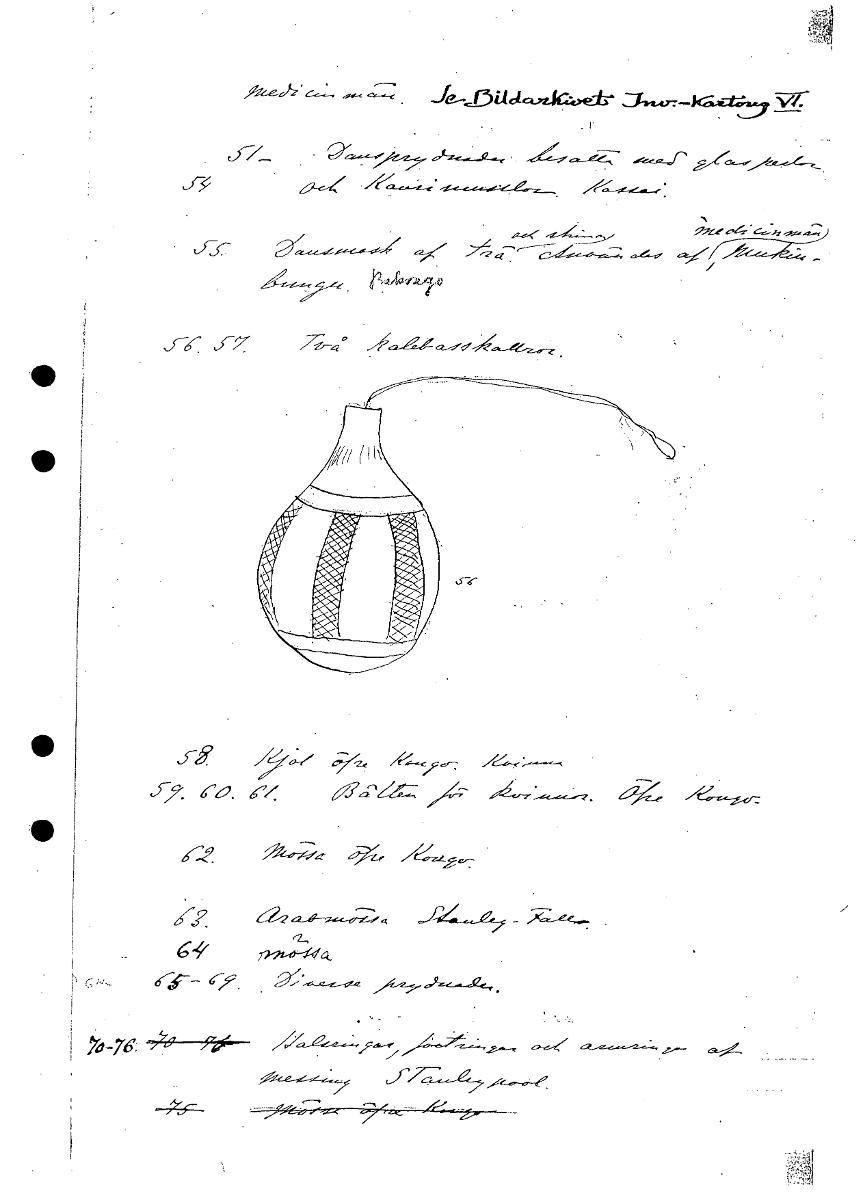 medicinmän. Se Bildarkivets Inv.-Kartong VI.
51- Dansprydnader besatta med glasperlor
54 och Kaurimusslor. Kassai.
och skinn medicinmän
55. Dansmask af trä Användes af Mukim-
bungu. Bakongo
56. 57. Två kalebasskallror.
56
58. Kjol öfre Kongo. Kvinna
59. 60. 61. Bälten för kvinnor. Öfre Kongo.
62. Mössa öfre Kongo.
63. Arabmössa Stanley-Falls.
64 mössa
65-69. Diverse prydnader.
70-76. 70-76 Halsringar, fotringar och armringar af
messing Stanleypool.
75 Mössa öfre Kongo